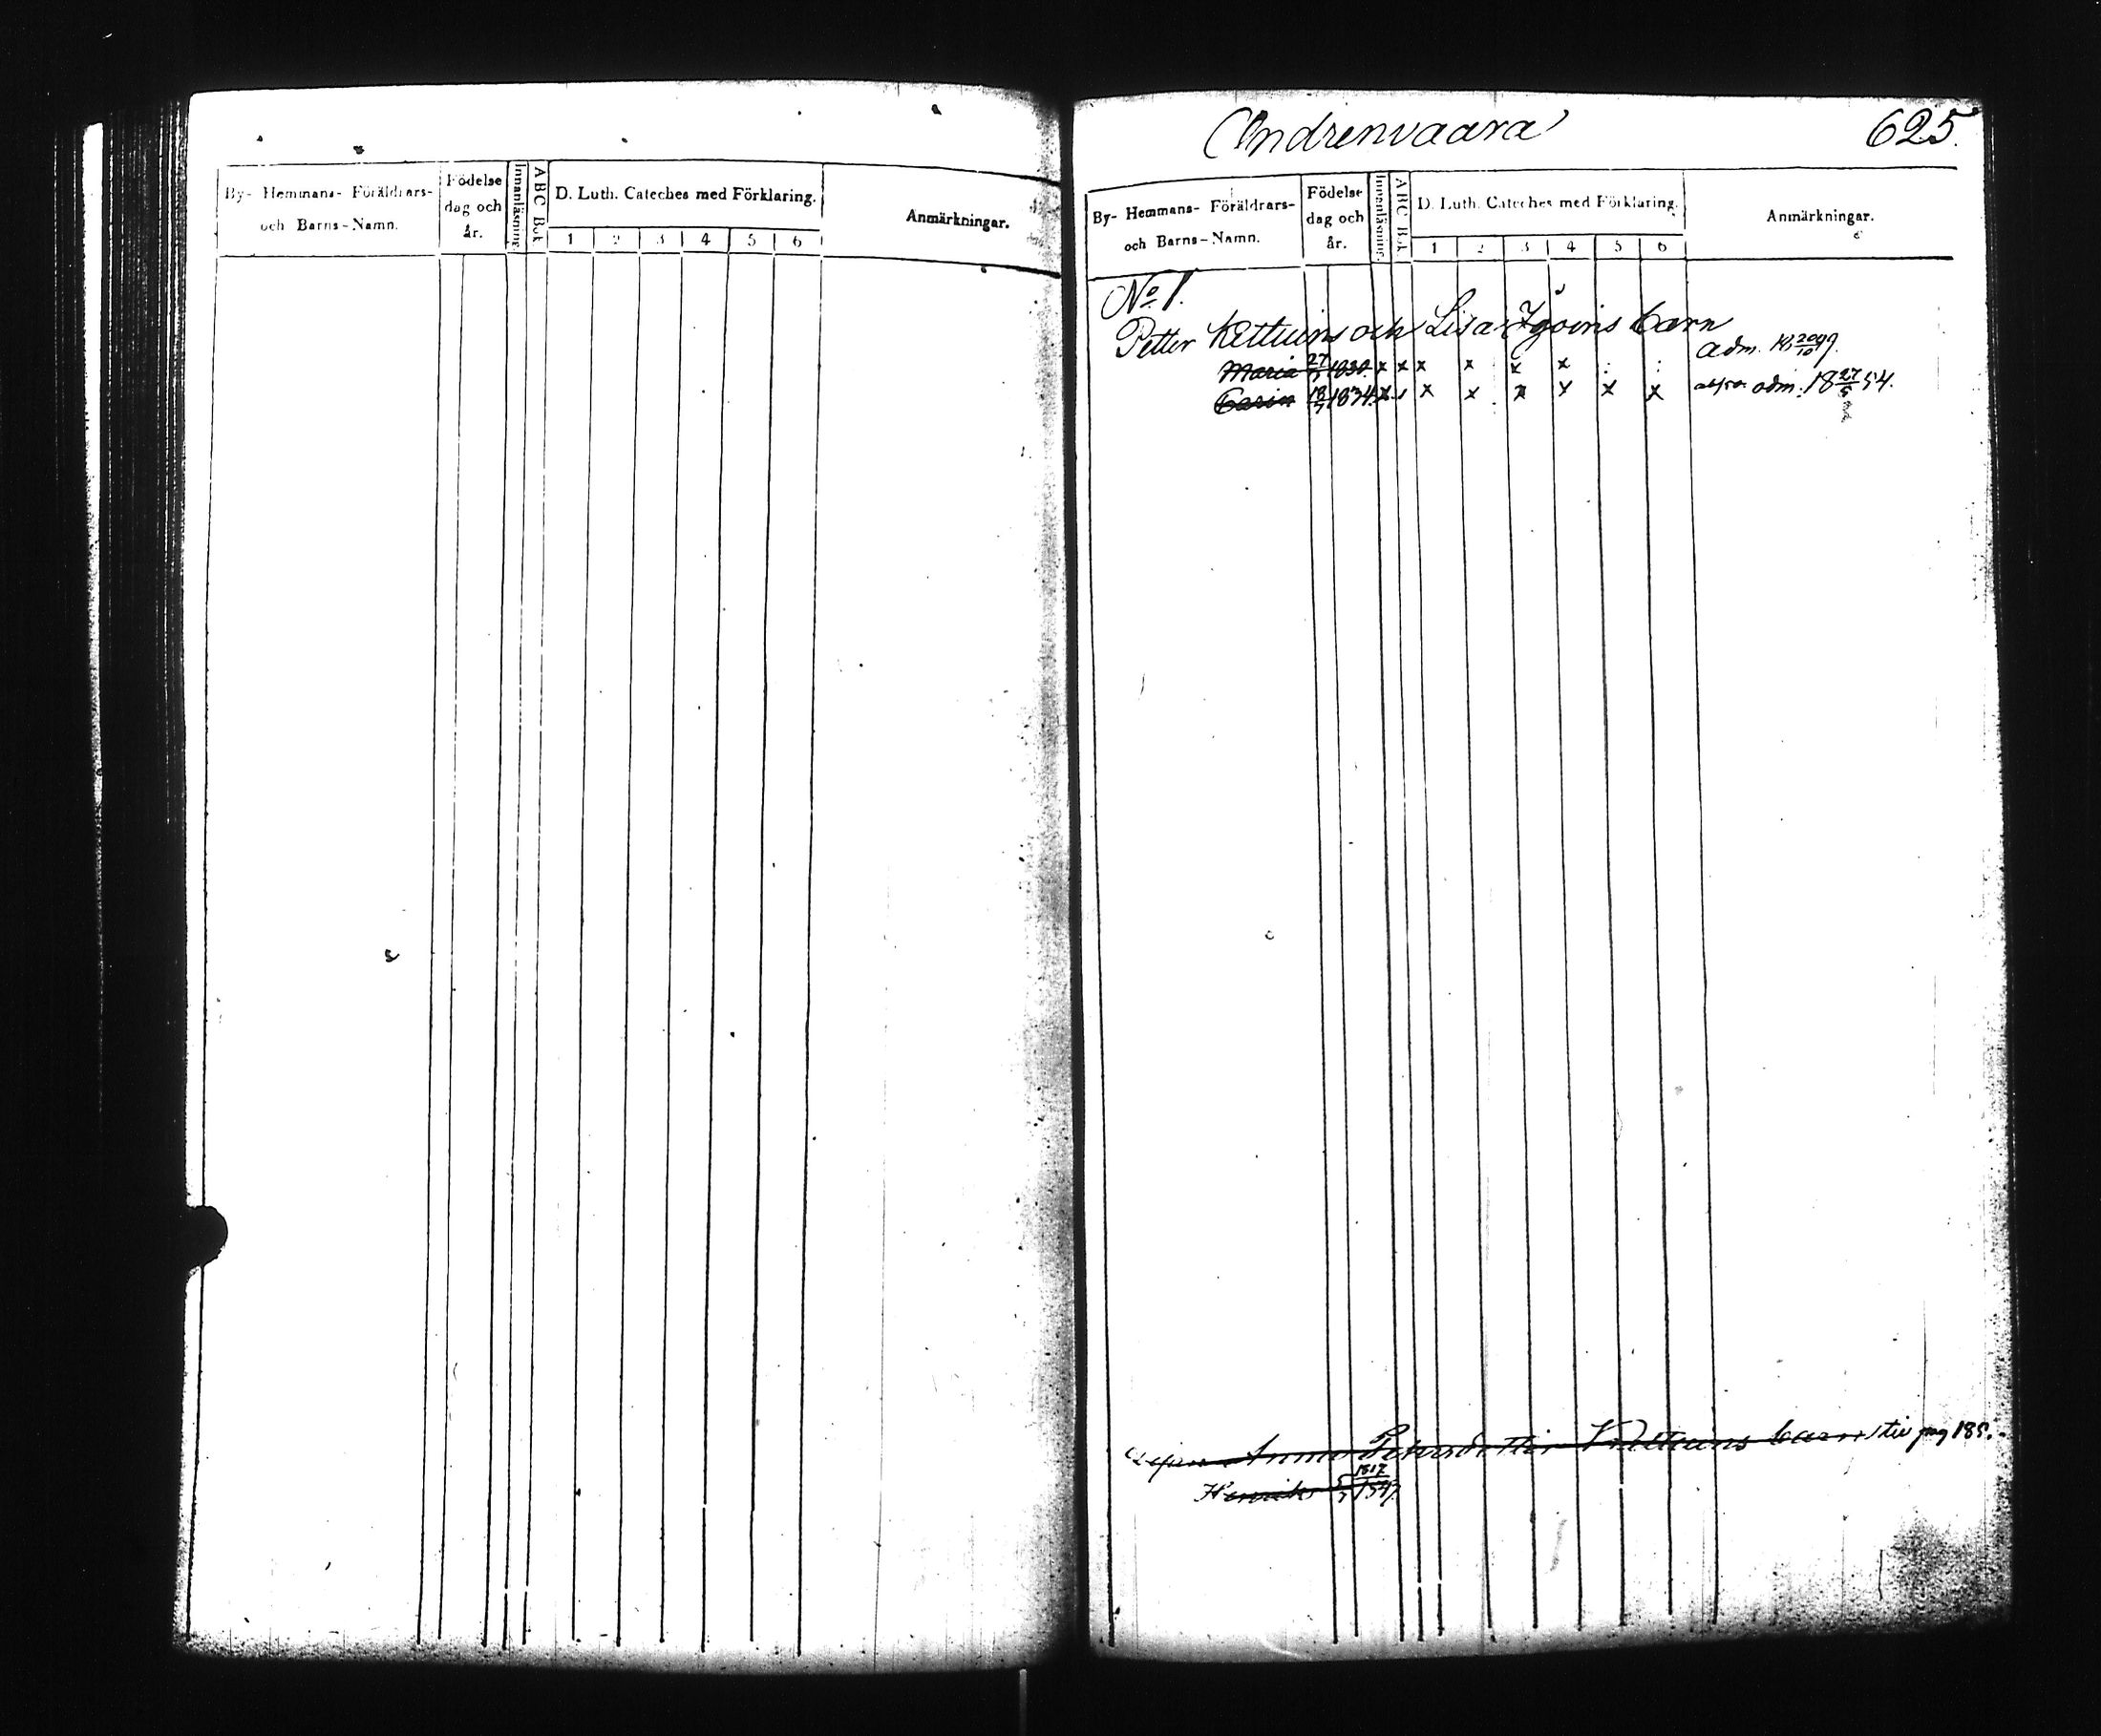 By- Hemmans- Föräldrars-
och Barns-Namn.
Födelse
dag och
år.
Innanläsning.
ABC Bok
D. Luth. Cateches med Förklaring.
1 2 3 4 5 6
Anmärkningar.
Andrenvaara
625.
By- Hemmans- Föräldrars-
och Barns-Namn.
Födelse
dag och
år.
Innanläsning.
ABC Bok
D. Luth. Cateches med Förklaring.
1 2 3 4 5 6
Anmärkningar.
No 1.
Petter Kettuins och Lisa barn
Maria 1830. x x x x x x adm.
Carin 1834 x x x x x x x adm. 18 27/5 54.
Anna Petersdotter Kettuins barn
Henrik